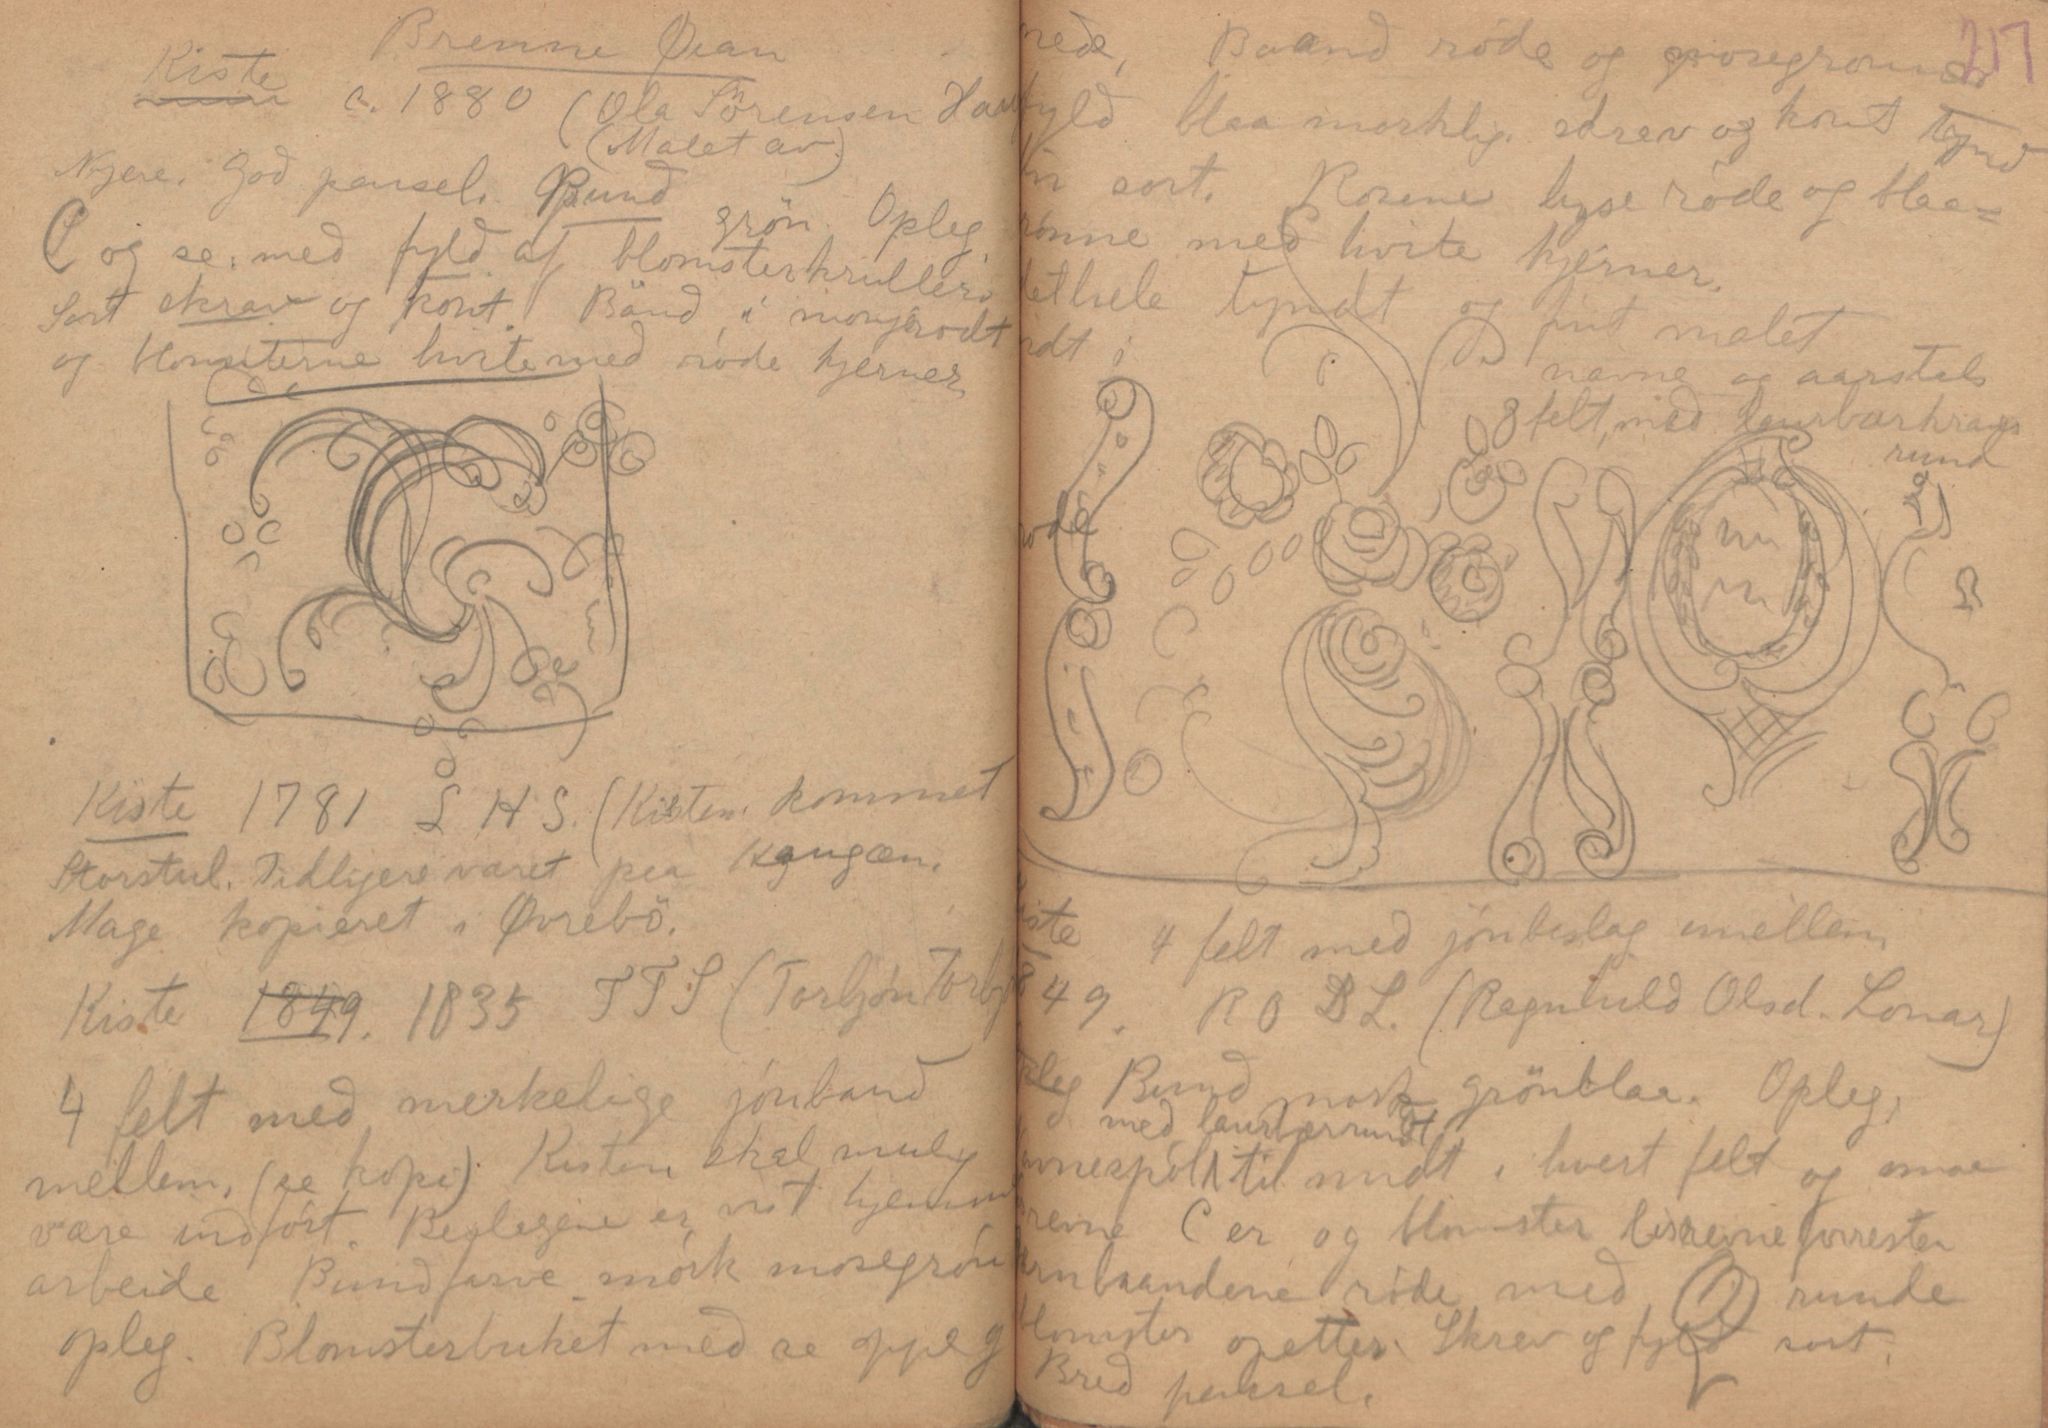 Brenne Øian
Kiste
c. 1880 (Ola Sörensen
(Malet av)
Nyere. God pensel. Bund grön. Opleg.
C og se. med fyld af blomsterkruller.
Sort skrav og kont. Bånd i
og blomsterne hvite med röde kjerner
Kiste 1781 L H S. (Kisten kommet
Storstul. Tidligere været paa
Mage kopieret i Øvrebö.
Kiste 1849. 1835 T T S (Torbjön Torbj
4 felt med merkelige jónband
mellem. (se kopi). Kisten skal mulig
være indfórt. Beslagene er vist hjemme
arbeide Bundfarve mórk mosegrón
opleg. Blomsterbuket med se oppleg
217
nede, Baand róde og mosegrönne
fyld blaa mörklig. skrav og kont tynd
fin sort. Rosene lyse róde og blaa=
grönne med hvite kjerner.
det hele tyndt og fint malet
rdt i
navne og aarstals
felt, med laurbærkrans
rund
röde
Kiste 4 felt med jónbeslag imellem
1849. R O D L. (Ragnhild Olsd. Lonar)
opleg Bund mörk grönblaa. Opleg.
med laurbærrundt
navnespóll til midt i hvert felt og smaa
C er og blomster
Jernbaandene röde med runde
blomster opetter. Skrav og fyld sort.
Bred pensel.